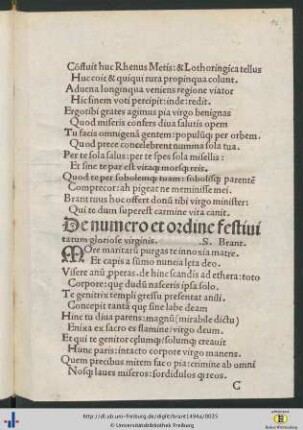 Cōfluit huc Rhenus Metis: & Lothoringica tellus
Huc coit & quiqui rura propinqua colunt.
Aduena longinqua veniens regione viator
Hic finem voti percipit: inde: redit.
Ergo tibi grates agimus pia virgo benignas
Quod miseris confers diua salutis opem
Tu facis omnigenā gentem: populūq; per orbem.
Quod prece concelebrent numina sola tua.
Per te sola salus: per te spes sola misellis:
Et sine te par est vitaq; morsq; reis.
Quod te per sobolemq; tuam: sobolisq; parentē
Comprecor: ah pigeat ne meminisse mei.
Brant tuus hoc offert donū tibi virgo minister:
Qui te dum superest carmine vita canit.
De numero et ordine festiui
tatum gloriose virginis. .S. Brant.
More maritarū purgas te innoxia matre.
Et capis a sūmo nuncia leta deo.
Visere anū properas. de hinc scandis ad ethera: toto
Corpore: que dudū nasceris ipsa solo.
Te genitrix templi gressu presentat anili.
Concepit tantā que sine labe deam
Hinc tu diua parens: magnū (mirabile dictu)
Enixa ex sacro es flamine/ virgo deum.
Et qui te genitor celumq;/ solumq; creauit
Hunc paris: intacto corpore virgo manens.
Quem precibus mitem fac o pia: crimine ab omni
Nosq; laues miseros: sordidulos q; reos.
C
http://dl.ub.uni-freiburg.de/diglit/brant1494a/0035
© Universitätsbibliothek Freiburg